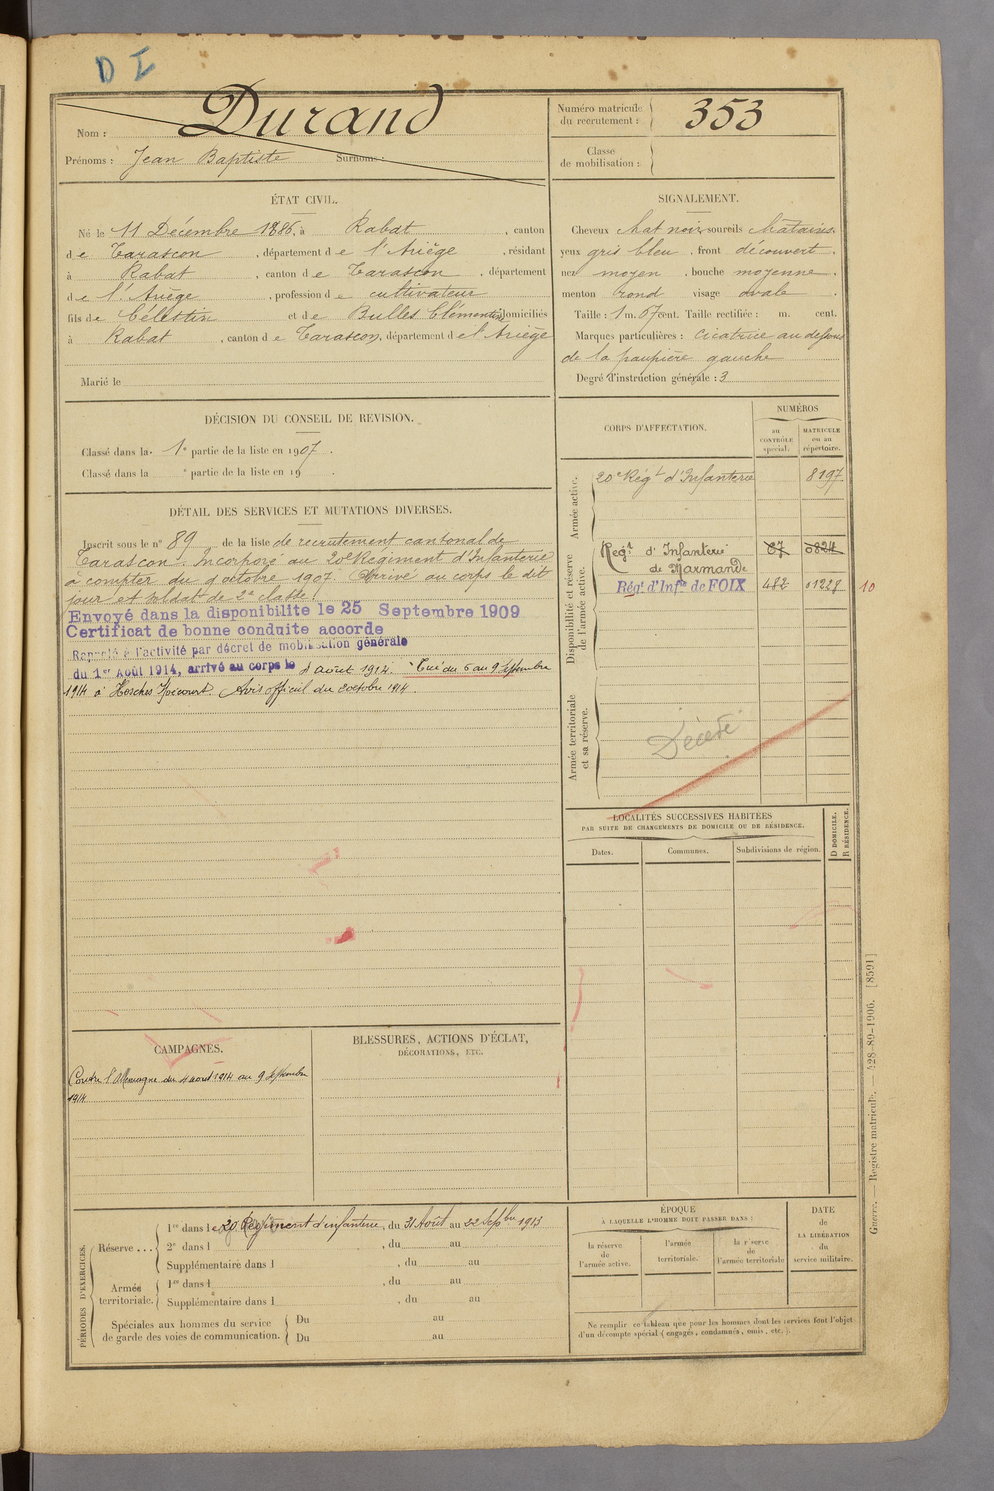 D I
Nom : Durand
Prénoms : Jean Baptiste Surnoms :
Numéro matricule du recrutement : 353
Classe de mobilisation :
ÉTAT CIVIL.
Né le 11 Décembre 1886, à Rabat, canton
de Tarascon, département de l'Ariège, résidant
à Rabat, canton de Tarascon, département
de l'Ariège, profession de cultivateur
fils de Célestin et de Bulles Clémentine domiciliés
à Rabat, canton de Tarascon, département de l'Ariège
Marié le
SIGNALEMENT.
Cheveux chat noir, sourcils châtains,
yeux gris bleu, front découvert,
nez moyen, bouche moyenne,
menton rond visage ovale.
Taille : 1 m. 67 cent. Taille rectifiée : m. cent.
Marques particulières : cicatrice au dessous
de la paupière gauche
Degré d'instruction générale : 3
DÉCISION DU CONSEIL DE REVISION.
Classé dans la 1e partie de la liste en 1907.
Classé dans la e partie de la liste en 19 .
DÉTAIL DES SERVICES ET MUTATIONS DIVERSES.
Inscrit sous le n° 89 de la liste de recrutement cantonal de
Tarascon. Incorporé au 20e Régiment d'Infanterie
à compter du 9 octobre 1907. Arrivé au corps le dit
jour et soldat de 2e classe.
Envoyé dans la disponibilite le 25 Septembre 1909
Certificat de bonne conduite accorde
Rappelé à l'activité par décret de mobilisation générale
du 1er Août 1914, arrivé au corps le 4 août 1914. Tué du 6 au 9 Septembre
1914 à Avis officiel du 2 octobre 1914.
CORPS D'AFFECTATION.
NUMÉROS
au CONTRÔLE spécial.
MATRICULE ou au répertoire.
Armée active.
20e Régt d'Infanterie 8197
Disponibilité et réserve de l'armée active.
Regt d'Infanterie 87 0824
de Marmande
Régt d'Infie de FOIX 482 01228 10
Armée territoriale et sa réserve.
Décédé
LOCALITÉS SUCCESSIVES HABITÉES
PAR SUITE DE CHANGEMENTS DE DOMICILE OU DE RÉSIDENCE.
Dates. Communes. Subdivisions de région. D DOMICILE. R RÉSIDENCE.
CAMPAGNES.
Contre l'Allemagne du 4 août 1914 au 9 Septembre
1914
BLESSURES, ACTIONS D'ÉCLAT,
DÉCORATIONS, ETC.
PÉRIODES D'EXERCICES.
Réserve ...
1re dans le 20e Régiment d'infanterie, du 31 Août au 22 Septbre 1913
2e dans l , du au
Supplémentaire dans l , du au
Armée territoriale.
1re dans l , du au
Supplémentaire dans l , du au
Spéciales aux hommes du service
de garde des voies de communication.
Du au
Du au
ÉPOQUE
À LAQUELLE L'HOMME DOIT PASSER DANS :
la réserve de l'armée active.
l'armée territoriale.
la réserve de l'armée territoriale
DATE de LA LIBÉRATION du service militaire.
Ne remplir ce tableau que pour les hommes dont les services font l'objet
d'un décompte spécial (engagés, condamnés, omis, etc.).
Guerre. — Registre matricule. — 428-89-1906. [8591]